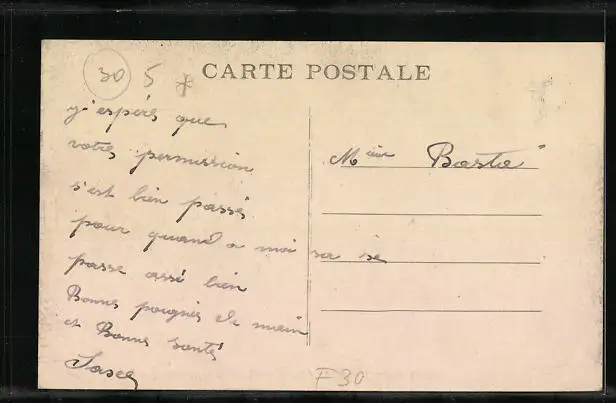 30 5
CARTE POSTALE
j'espérs que
votrs permission
s'est bien passés
pour quand a moi sa se
passe assé bien
Bonnes poignés de main
et Bonnes santés
Mieur Basta
F30